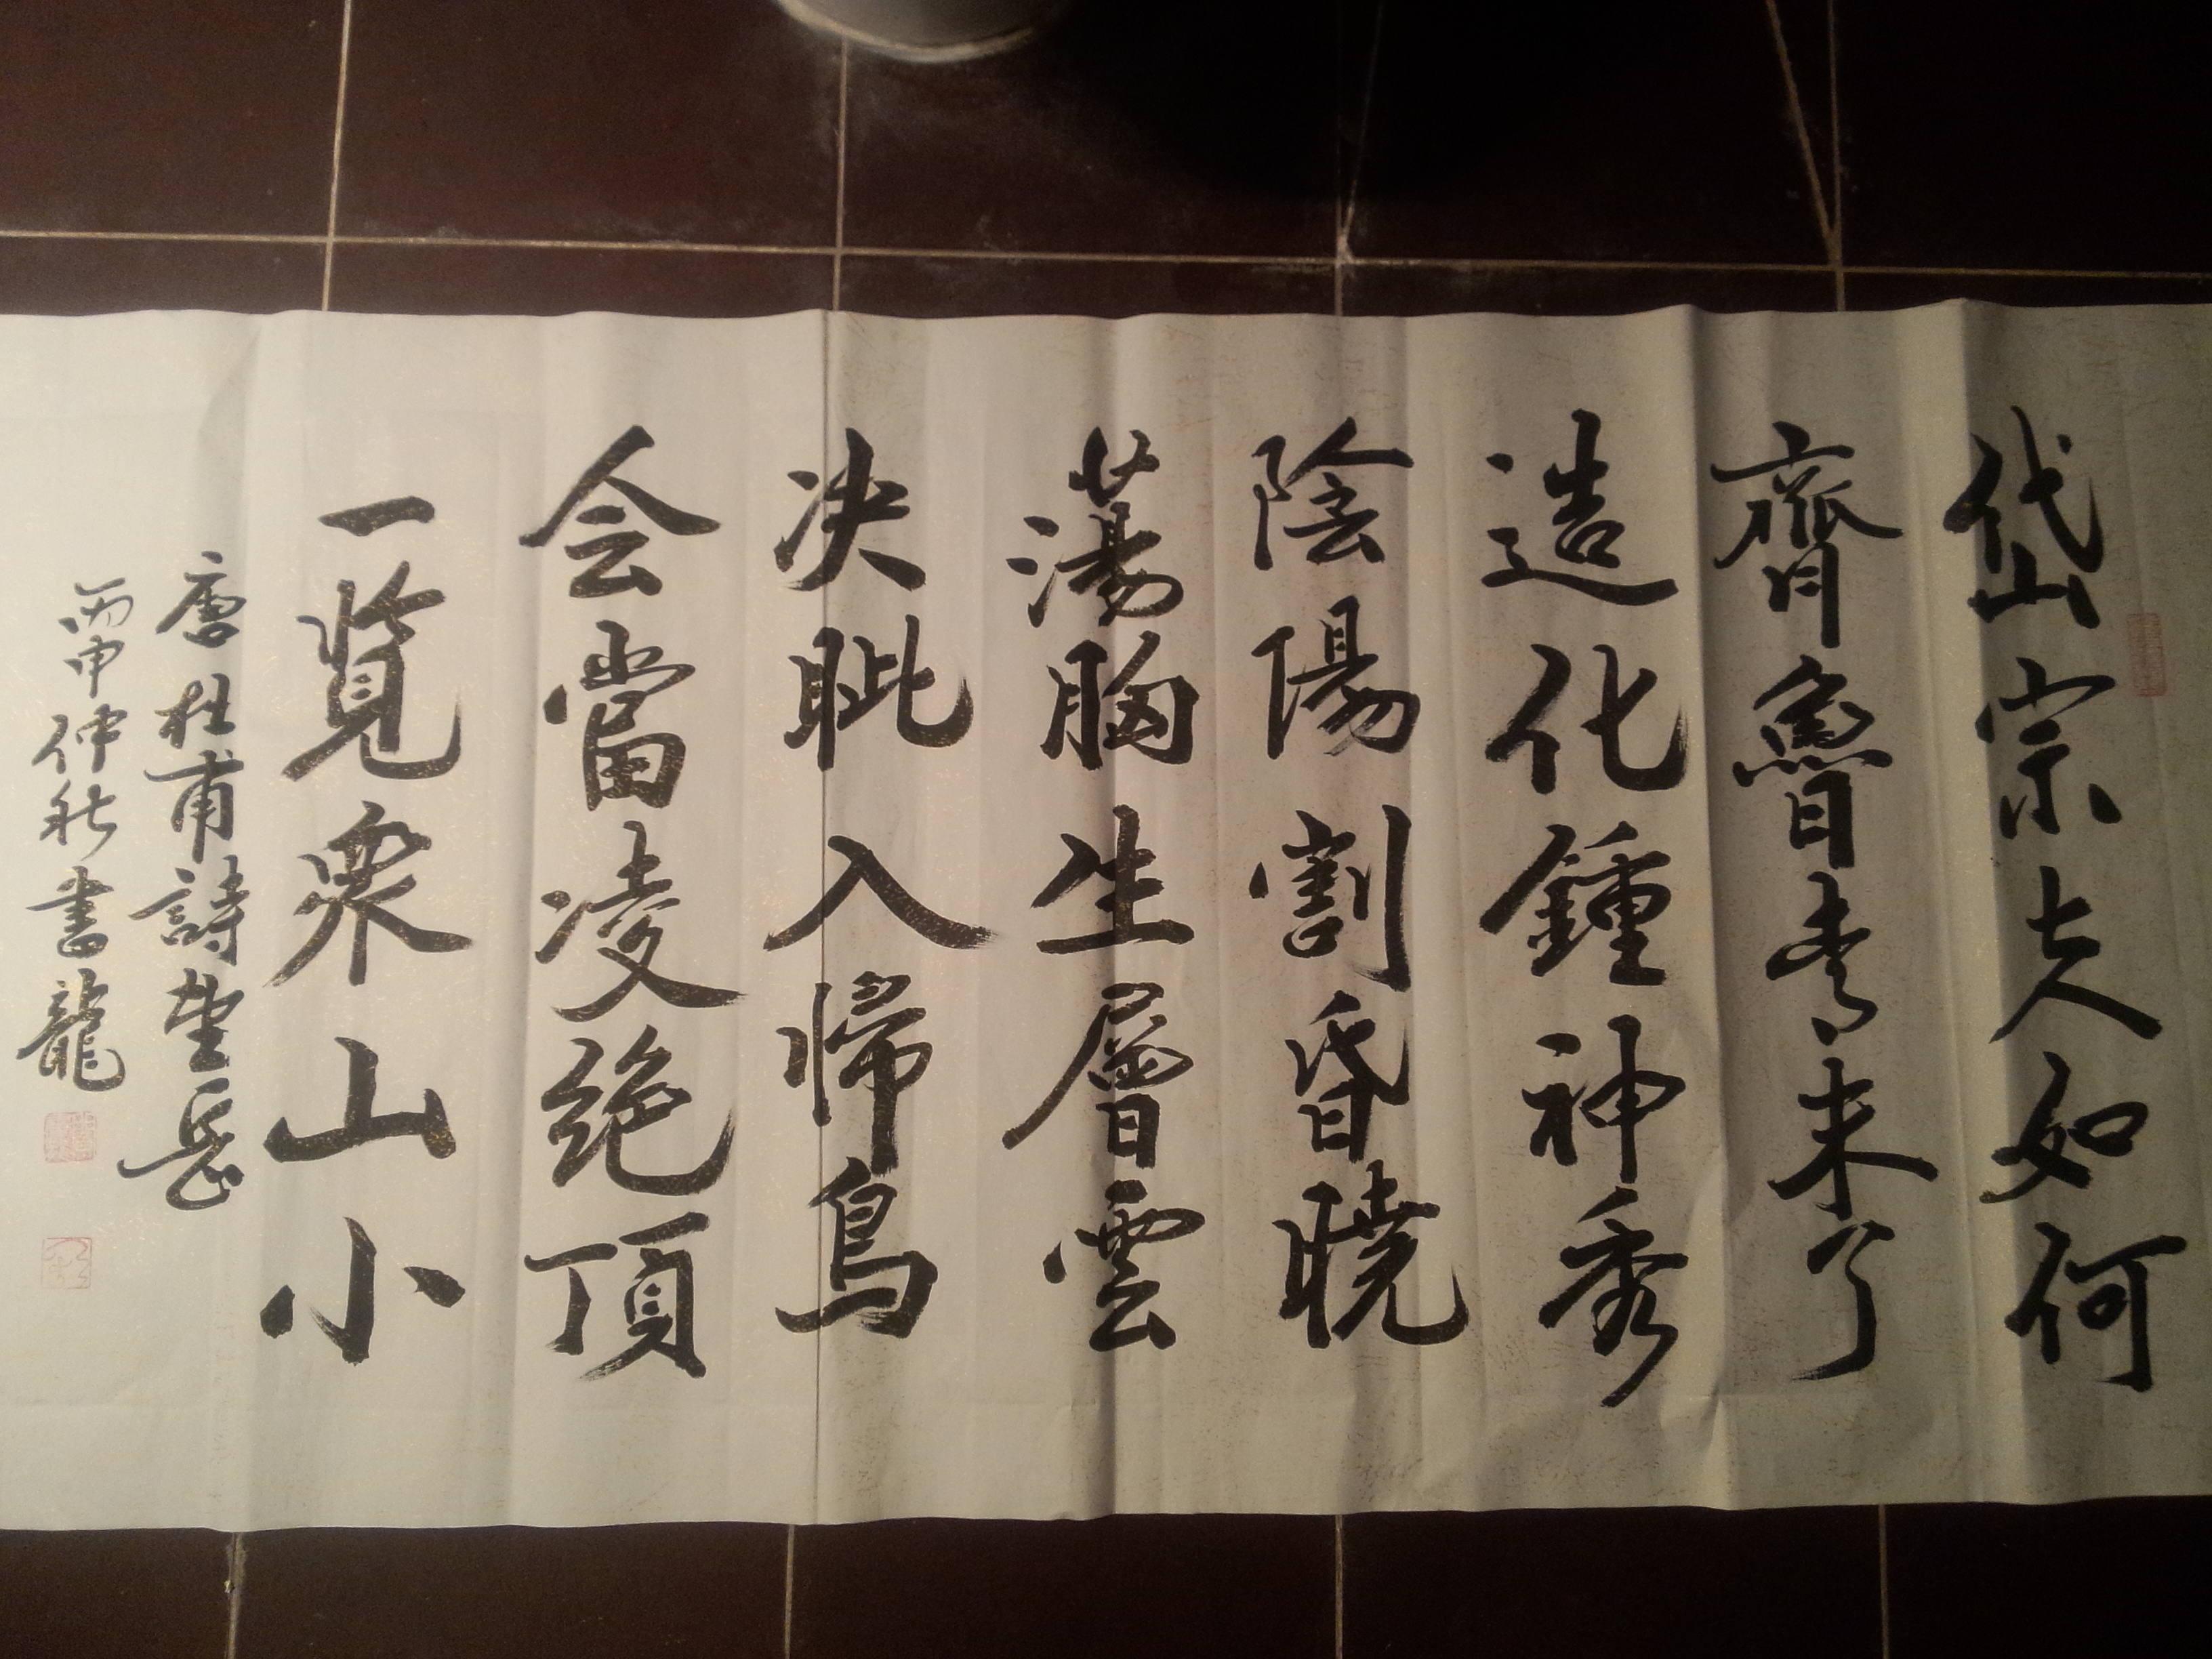 岱宗夫如何
齊魯青未了
造化鍾神秀
陰陽割昏曉
蕩胸生層雲
决眦入歸鳥
会當凌绝頂
一览衆山小
唐杜甫詩望岳
丙申仲秋書龍